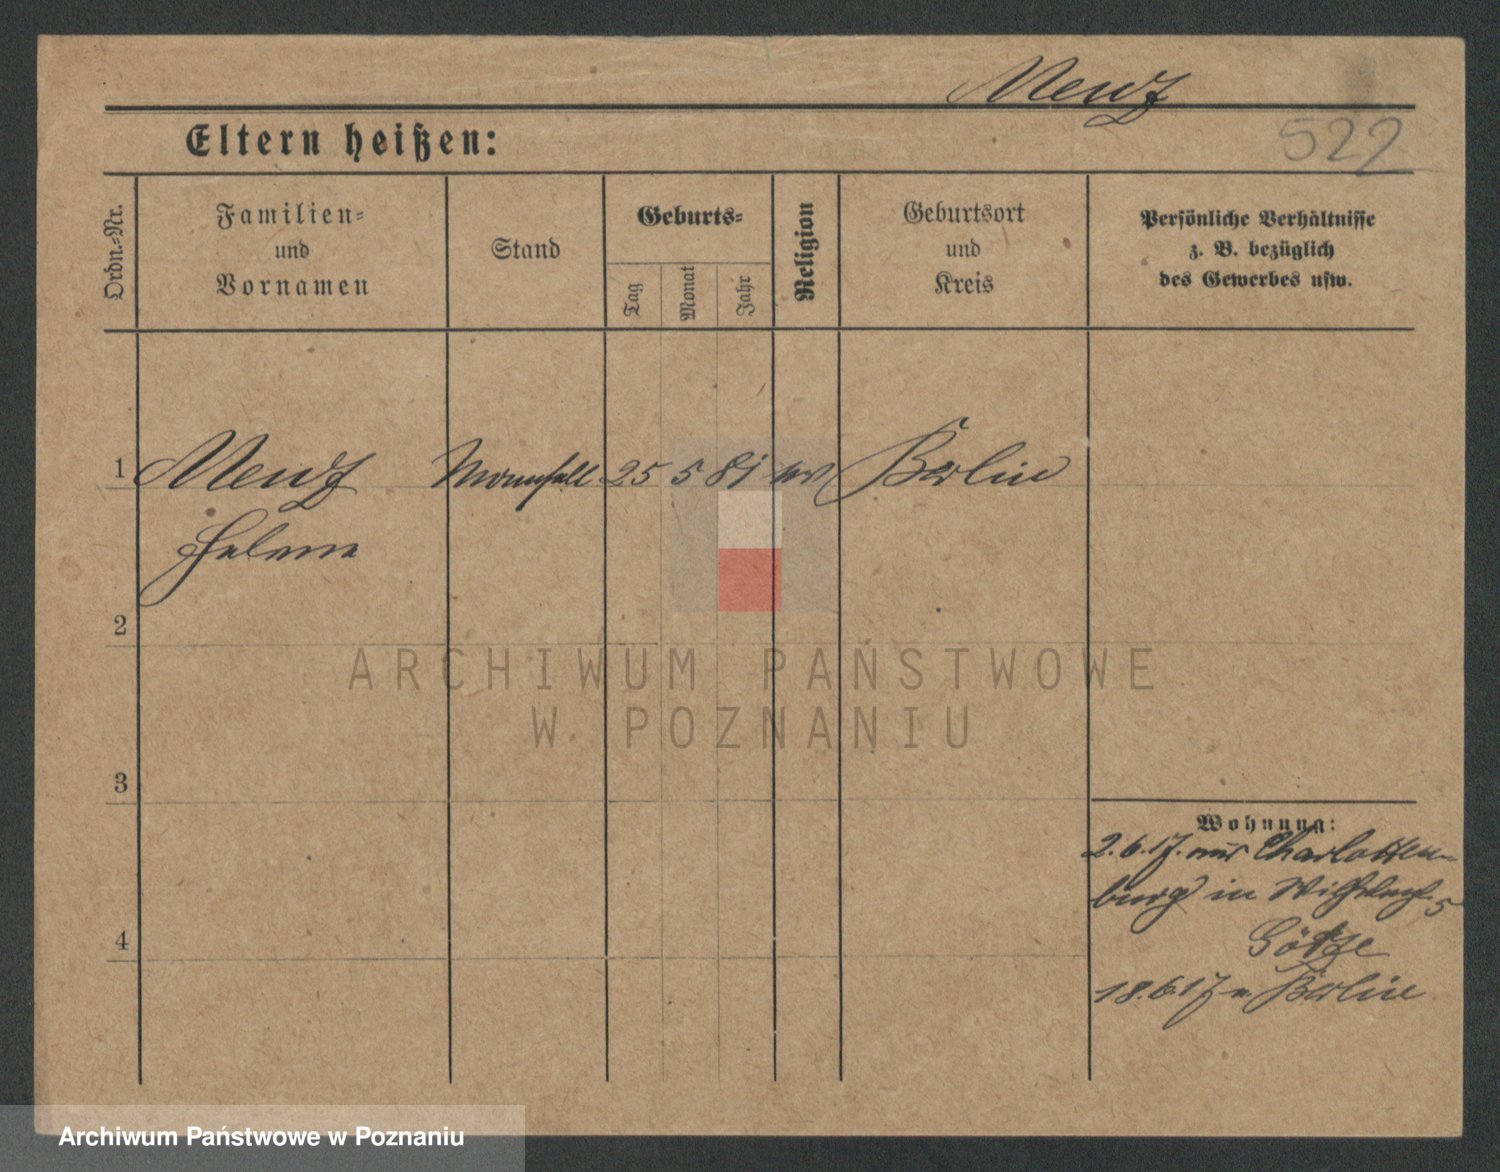 Menz
Eltern heißen:
522
Ordn.-Nr.
Familien-
und
Vornamen
Stand
Geburts-
Tag
Monat
Jahr
Religion
Geburtsort
und
Kreis
Persönliche Verhältnisse
z. B. bezüglich
des Gewerbes usw.
1
Menz
25 5 81
Berlin
Helene
2
ARCHIWUM PAŃSTWOWE
W POZNANIU
3
Wohnung:
2.6.17. aus Charlotten-
burg in 5
4
Götze
18.6.17 n. Berlin
Archiwum Państwowe w Poznaniu